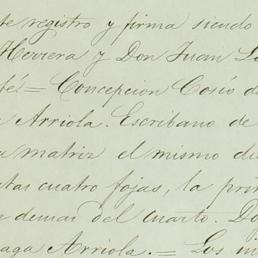 te registro y firma siendo
Herrera y Don Juan L
fé = Concepcion Cosío d
Arriola. Escribano de
matriz el mismo di
tas cuatro fojas, la pri
demas del cuarto. D
aga Arriola. = Los in